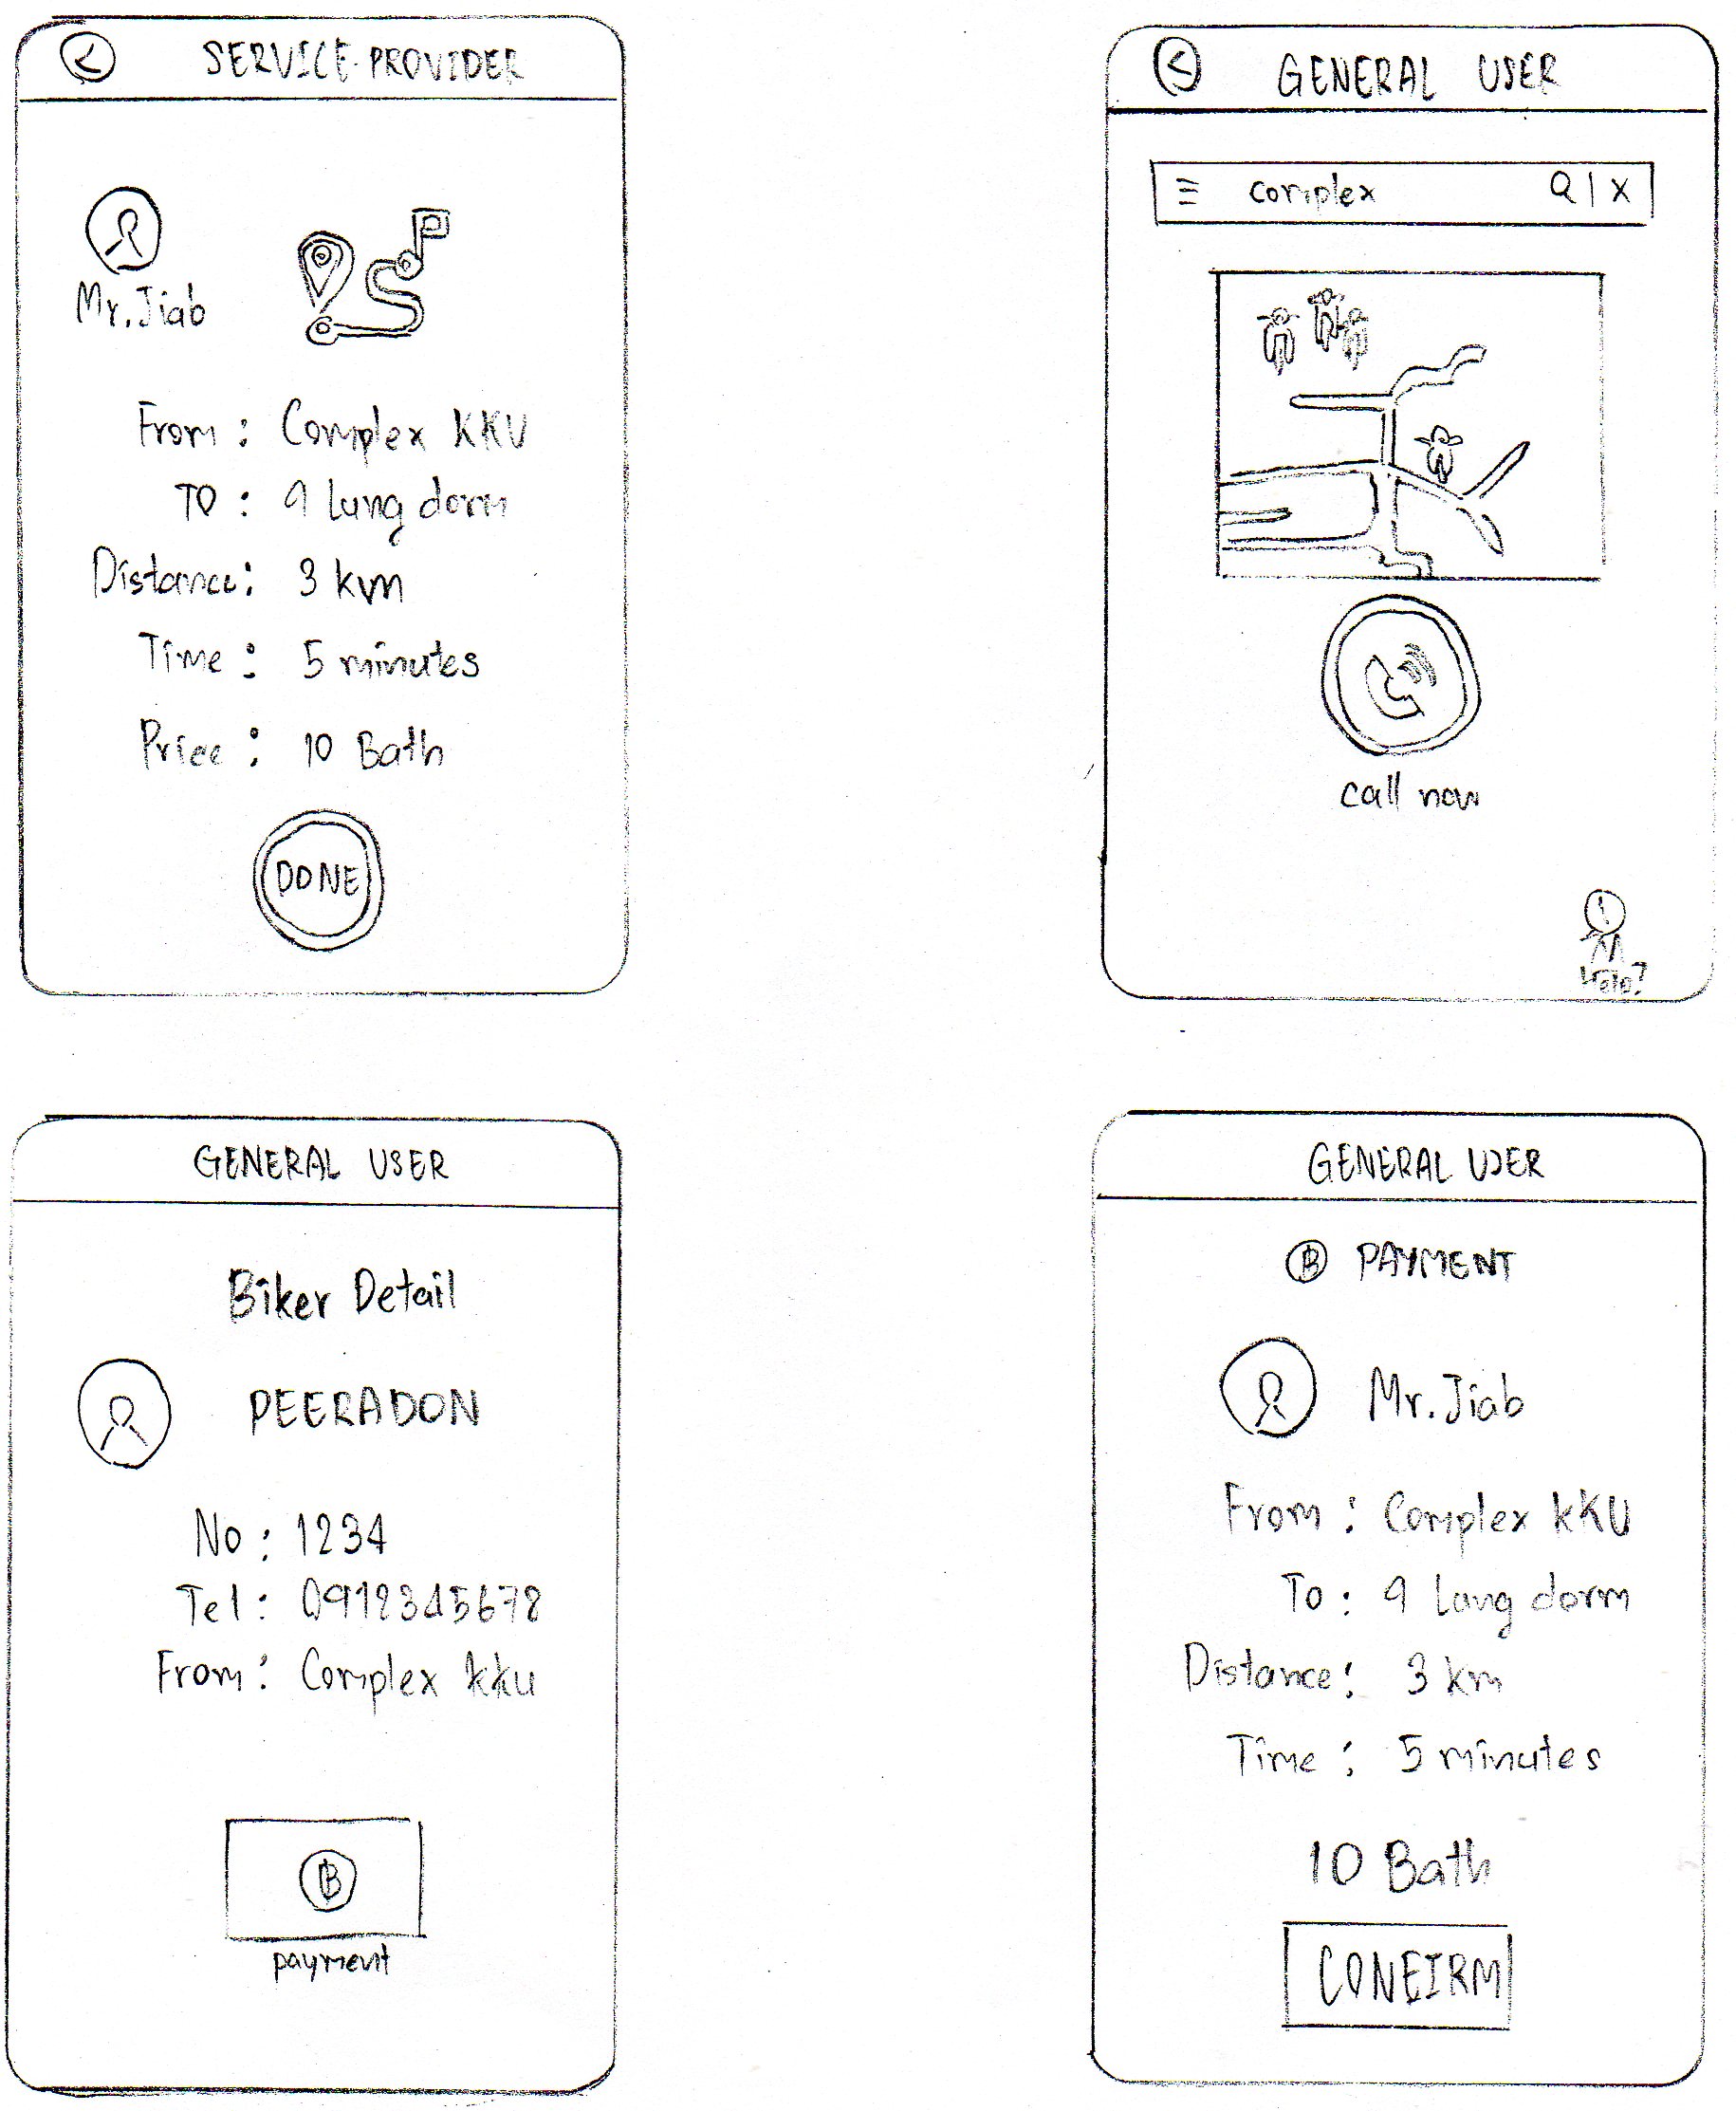 SERVICE PROVIDER
Mr. Jiab
From : Complex KKU
TO : 9 Lung dorm
Distance : 3 km
Time : 5 minutes
Price : 10 Bath
DONE
GENERAL USER
complex
call now
Help?
GENERAL USER
Biker Detail
PEERADON
No : 1234
Tel : 0912345678
From : Complex kku
฿
payment
GENERAL USER
฿ PAYMENT
Mr. Jiab
From : Complex kKU
To : 9 Lang dorm
Distance : 3 km
Time : 5 minutes
10 Bath
CONFIRM